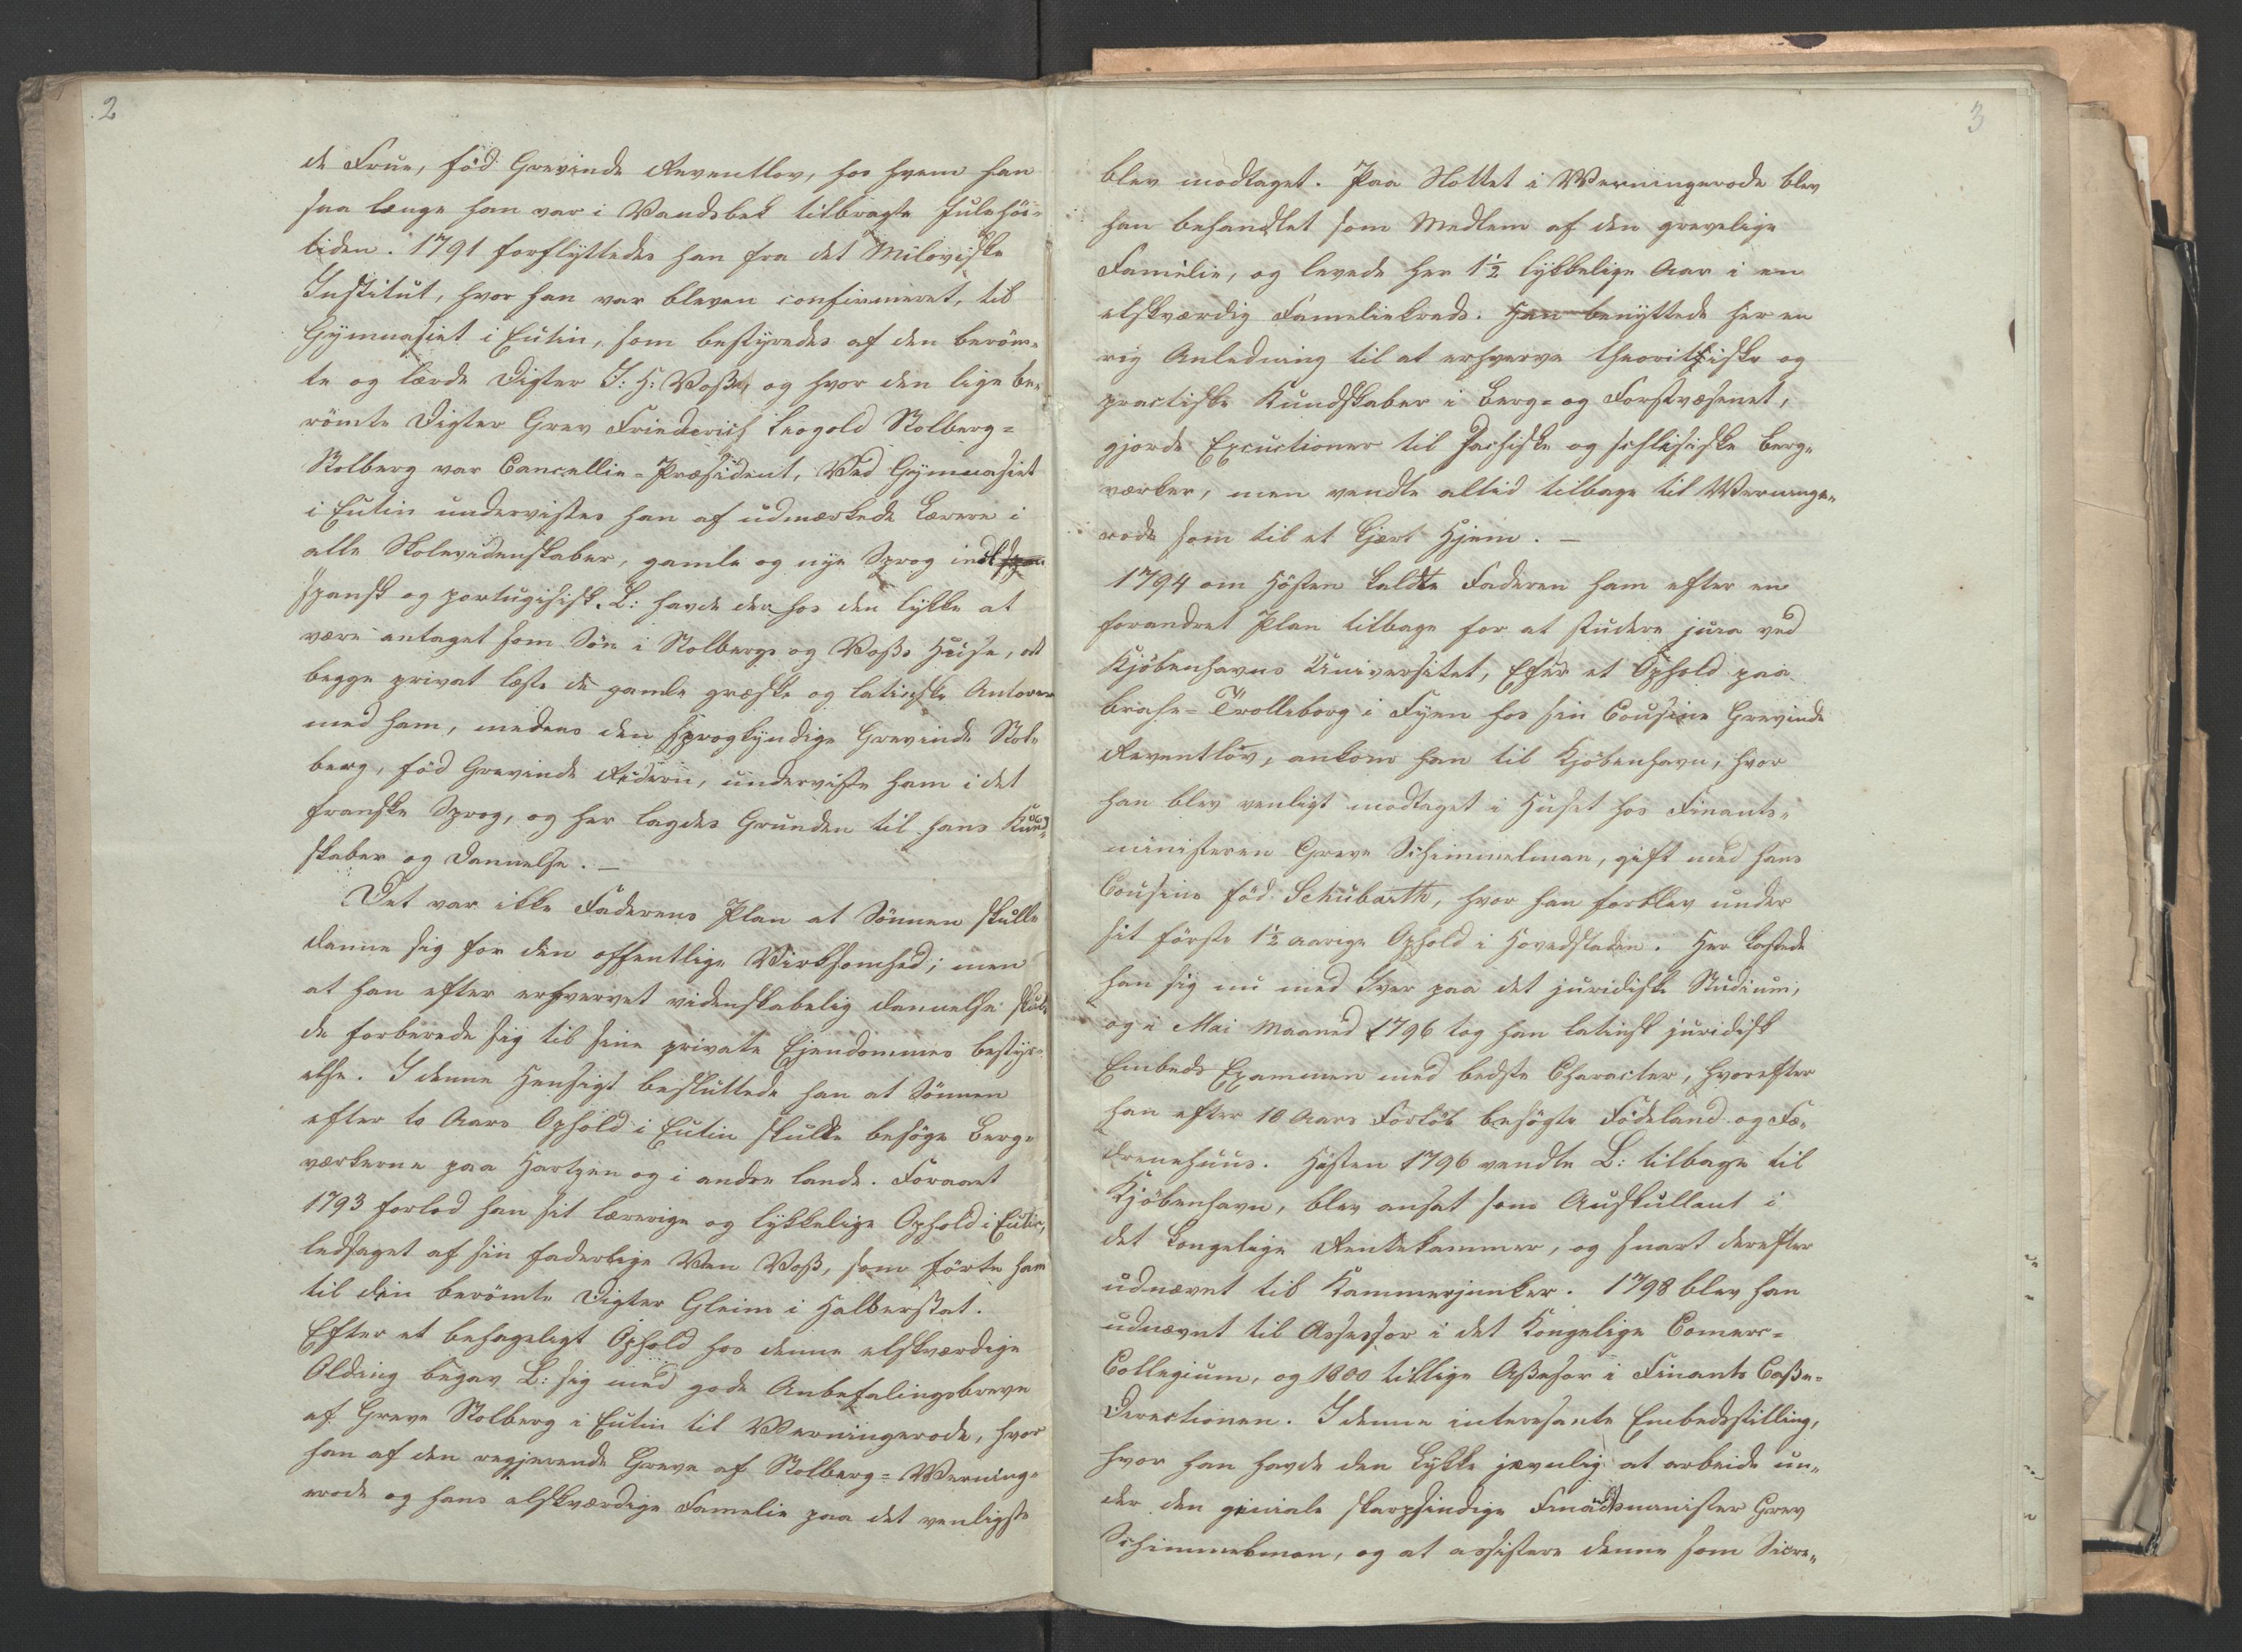 2
de Frue, född Grevinde Reventlov, hos hvem han
saa længe han var i Vandsbek tilbragte Julehöi-
tiden. 1791 forflyttedes han fra det Miloviske
Institut, hvor han var bleven confirmeret, til
Gymnasiet i Eutin, som bestyredes af den beröm-
te og lærde Digter J: H: Voß, og hvor den lige be-
römte Digter Grev Friederich Leopold Stolberg=
Stolberg var Cancellie=Præsident, Ved Gymnasiet
i Eutin undervistes han af udmærkede Lærere i
alle Skolevidenskaber, gamle og nye Sprog indtil
spansk og portugisisk. L: havde der hos den Lykke at
være antaget som Sön i Stolbergs og Voß's Huse, at
begge privat læste de gamle græske og latinske Autorer
med ham, medens den sprogkyndige Grevinde Stol-
berg, född Grevinde Redern, underviste ham i det
franske Sprog, og her lagdes Grunden til hans Kund-
skaber og Dannelse. —
Det var ikke Faderens Plan at Sönnen skulle
danne sig for den offentlige Virksomhed; men
at han efter erhvervet videnskabelig Dannelse skul-
de forberede sig til sine private Ejendommes besty-
else. I denne Hensigt besluttede han at Sönnen
efter to Aars Ophold i Eutin skulde besöge Berg-
værkerne paa Hartzen og i andre Lande. Foraaret
1793 forlod han sit lærerige og lykkelige Ophold i Eutin,
ledsaget af sin faderlige Ven Voß, som förte ham
til den berömte Digter Gleim i Halberstat.
Efter et behageligt Ophold hos denne elskværdige
Olding begav L: sig med gode Anbefalingsbreve
af Greve Stolberg i Eutin til Werningerode, hvor
han af den regjerende Greve af Stolberg=Werning-
erode og hans elskværdige Famelie paa det venligste
3
blev modtaget. Paa Slottet i Werningerode blev
han behandlet som Medlem af den grevelige
Familie, og levede her 1½ lykkelige Aar i en
elskværdig Fameliekreds. Han benyttede her en
rig Anledning til at erhverve theoritiske og
practiske Kundskaber i Berg= og Forstvæsenet,
gjorde Excuctioner til sachsiske og schlesiske Berg-
værker, men vendte altid tilbage til Werninge-
rode som til et kjært Hjem. —
1794 om Hösten kaldte Faderen ham efter en
forandret Plan tilbage for at studere jura ved
Kjöbenhavns Universitet, Efter et Ophold paa
Brahe=Trolleborg i Fyen hos sin Cousine Grevinde
Reventlov, ankom han til Kjöbenhavn, hvor
han blev venligt modtaget i Huset hos Finants-
ministeren Greve Schimmelman, gift med hans
Cousine föd Schubarth, hvor han forblev under
sit förste 1½ aarige Ophold i Hovedstaden. Her kastede
han sig nu med Iver paa det juridiske Studium,
og i Mai Maaned 1796 tog han latinsk juridisk
Embeds Exammen med bedste Character, hvorefter
han efter 10 Aars Forlöb besögte Födeland og Fæ-
drenehuus. Hösten 1796 vendte L: tilbage til
Kjöbenhavn, blev ansat som Auskultant i
det kongelige Rentekammer, og snart derefter
udnævnt til Kammerjunker. 1798 blev han
udnævnt til Assessor i det Kongelige Comerc=
Collegium, og 1800 tillige Aßesor i Finants Caße=
Directionen. I denne interesante Embedsstilling,
hvor han havde den Lykke jævnlig at arbeide un-
der den geniale skarpsindige Finantsminister Grev
Schimmelman, og at assistere denne som Secre-